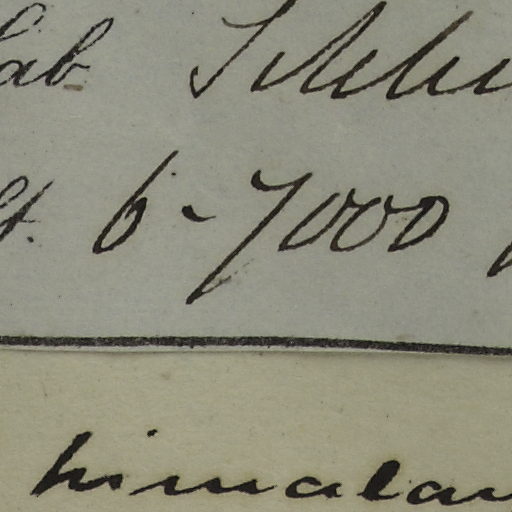 Hab. Sikki
lt. 6-7000
himalay